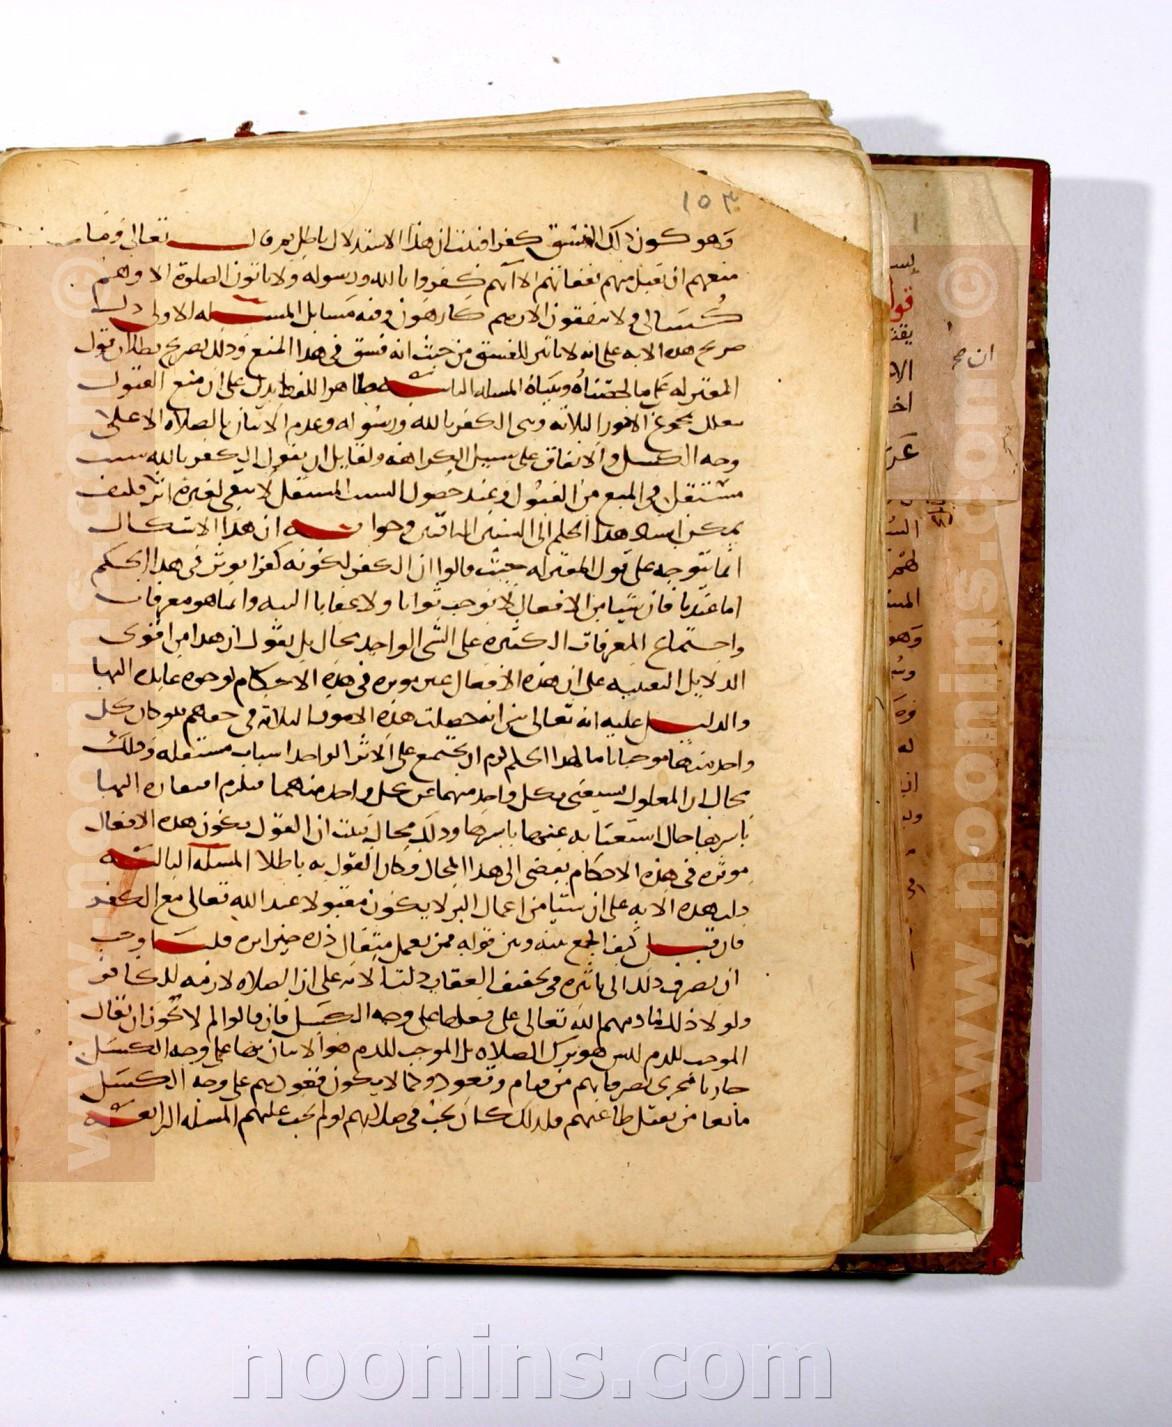 ١٥٣
وهو كون ذلك الفسق كفرا فثبت ان هذا الاستدلال باطل قوله تعالى وما
منعهم ان تقبل منهم نفقاتهم الا انهم كفروا بالله ورسوله ولا ياتون الصلوة الا وهم
كسالى ولا ينفقون الا وهم كارهون وفيه مسايل المسئله الاولى دل
صريح هذه الايه على انه لا تاثير للفسق من حيث انه فسق في هذا المنع وذلك تصريح بطلان قول
المعتزله على ما لخصناه وبيناه المسله الثانيه ظاهر اللفظ يدل على ان منع القبول
معلل بمجموع الامور الثلاثه وهي الكفر بالله ورسوله وعدم الاتيان بالصلاه الا على
وجه الكسل والانفاق على سبيل الكراهه ولقايل ان يقول الكفر بالله سبب
مستقل في المنع من القبول وعند حصول السبب المستقل لا يبقى لغيره اثر فكيف
يمكن اسناد هذا الحكم الى السببين الباقيين وجوابه ان هذا الاشكال
انما يتوجه على قول المعتزله حيث قالوا ان الكفر لكونه كفرا يوثر في هذا الحكم
اما عندنا فان شيا من الافعال لا يوجب ثوابا ولا عقابا البته وانما هو معرفات
واجتماع المعرفات الكثيره على الشي الواحد محال بل نقول ان هذا من اقوى
الدلايل اليقينيه على ان هذه الافعال غير موثره في هذه الاحكام لوجوه عايده اليها
والدليل عليه انه تعالى بين انه حصلت هذه الامور الثلاثه في حقهم فلو كان كل
واحد منها موجبا تاما لهذا الحكم لزم ان يجتمع على الاثر الواحد اسباب مستقله وذلك
محال لان المعلول يستغنى بكل واحد منهما عن كل واحد منهما فيلزم افتقاره اليها
باسرها حال استغنايه عنها باسرها وذلك محال فثبت ان القول بكون هذه الافعال
موثره في هذه الاحكام يفضى الى هذا المحال فكان القول به باطلا المسله الثالثه
دلت هذه الايه على ان شيا من اعمال البر لا يكون مقبولا عند الله تعالى مع الكفر
فان قيل كيف الجمع بينه وبين قوله فمن يعمل مثقال ذره خيرا يره قلنا وجب
ان يصرف ذلك الى تاثيره في تخفيف العقاب دلت الايه على ان الصلاه لازمه للكافر
ولولا ذلك لما ذمهم الله تعالى على فعلها على وجه الكسل فان قالوا لم لا يجوز ان يقال
الموجب للذم ليس هو ترك الصلاه بل الموجب للذم هو الاتيان بها على وجه الكسل
جاريا مجرى تصرفاتهم من قيام وقعود وكما لا يكون قعودهم على وجه الكسل
مانعا من تقبل طاعتهم فلذلك كان يجب في صلاتهم لو لم تجب عليهم المسئله الرابعه
قول
ان صح
www.noonins.com ©
www.noonins.com ©
noonins.com